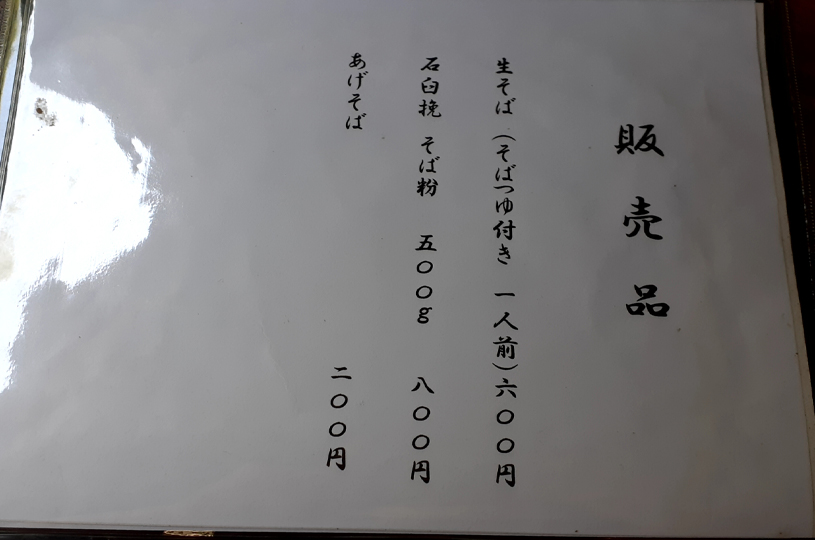 販売品
生そば（そばつゆ付き 一人前）六〇〇円
石臼挽 そば粉 五〇〇g 八〇〇円
あげそば 二〇〇円